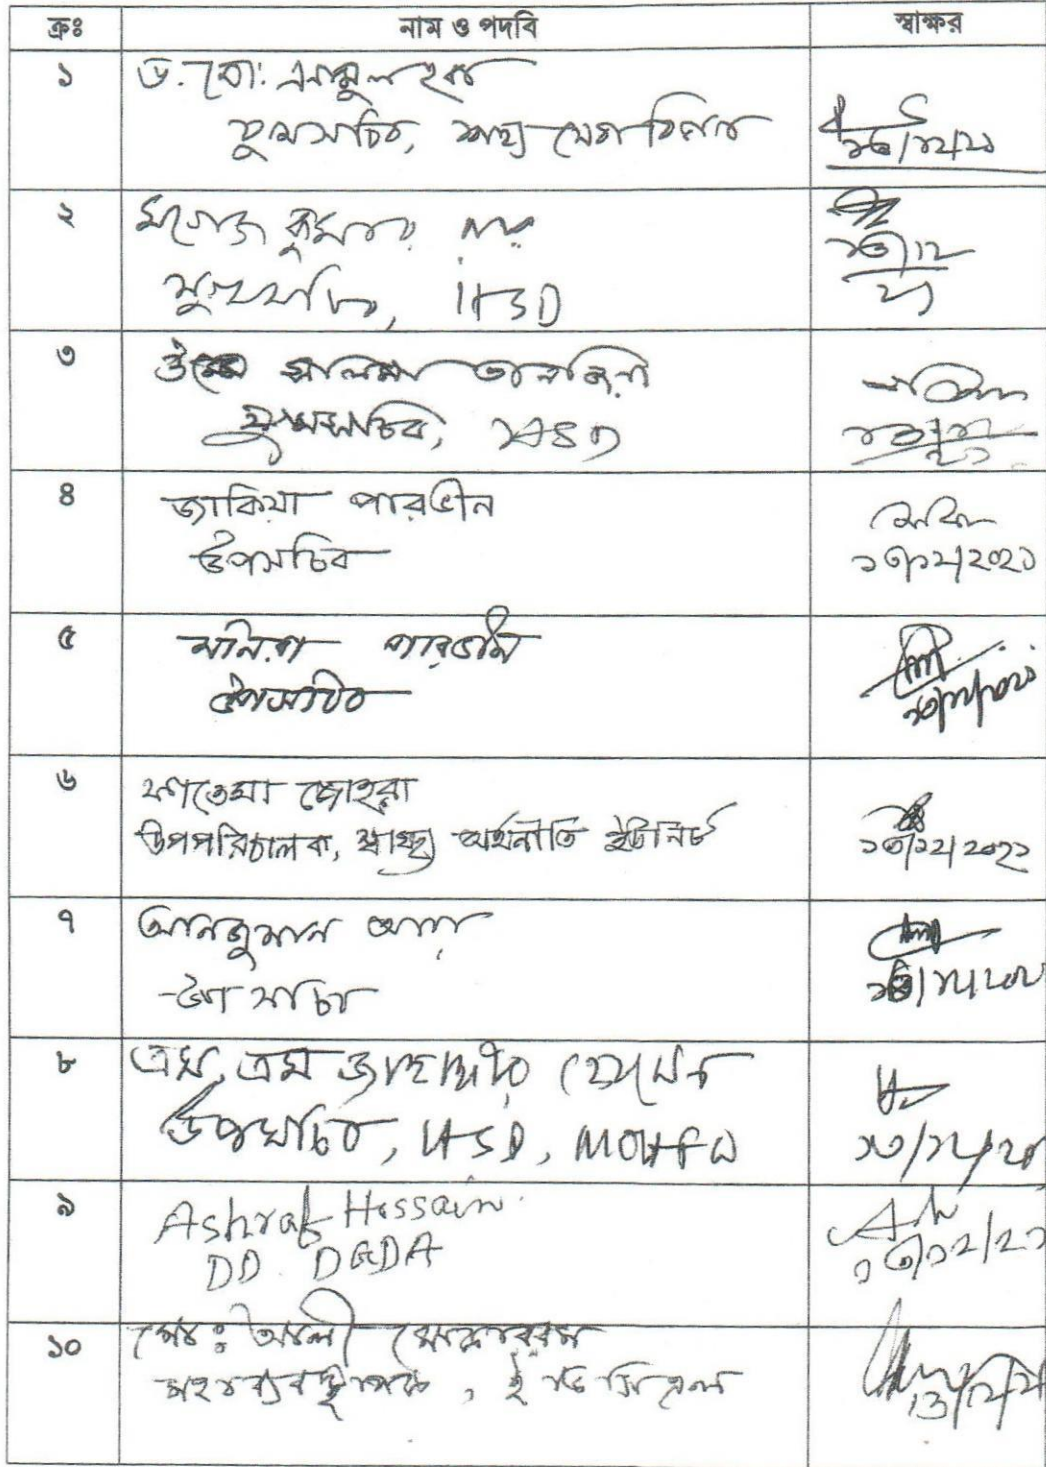 ক্রঃ নাম ও পদবি স্বাক্ষর
১ ড. মো: এনামুল হক
যুগ্মসচিব, স্বাস্থ্য সেবা বিভাগ
১৩/১২/২১
২ মনোজ কুমার রায়
যুগ্মসচিব, HSD
১৩/১২
২১
৩ উম্মে সালমা তানজিয়া
যুগ্মসচিব, HSD
৪ জাকিয়া পারভীন
উপসচিব ১৩/১২/২০২১
৫ মনিরা পারভীন
উপসচিব
৬ ফাতেমা জোহরা
উপপরিচালক, স্বাস্থ্য অর্থনীতি ইউনিট ১৩/১২/২০২১
৭ আনজুমান আরা
উপসচিব
৮ এম, এম জাহাঙ্গীর হোসেন
উপসচিব, HSD, MOHFW ১৩/১২/২১
৯ Ashraf Hossain
DD DGDA ১৩/১২/২১
১০ মোঃ আলী
মহাব্যবস্থাপক, ইডিসিএল